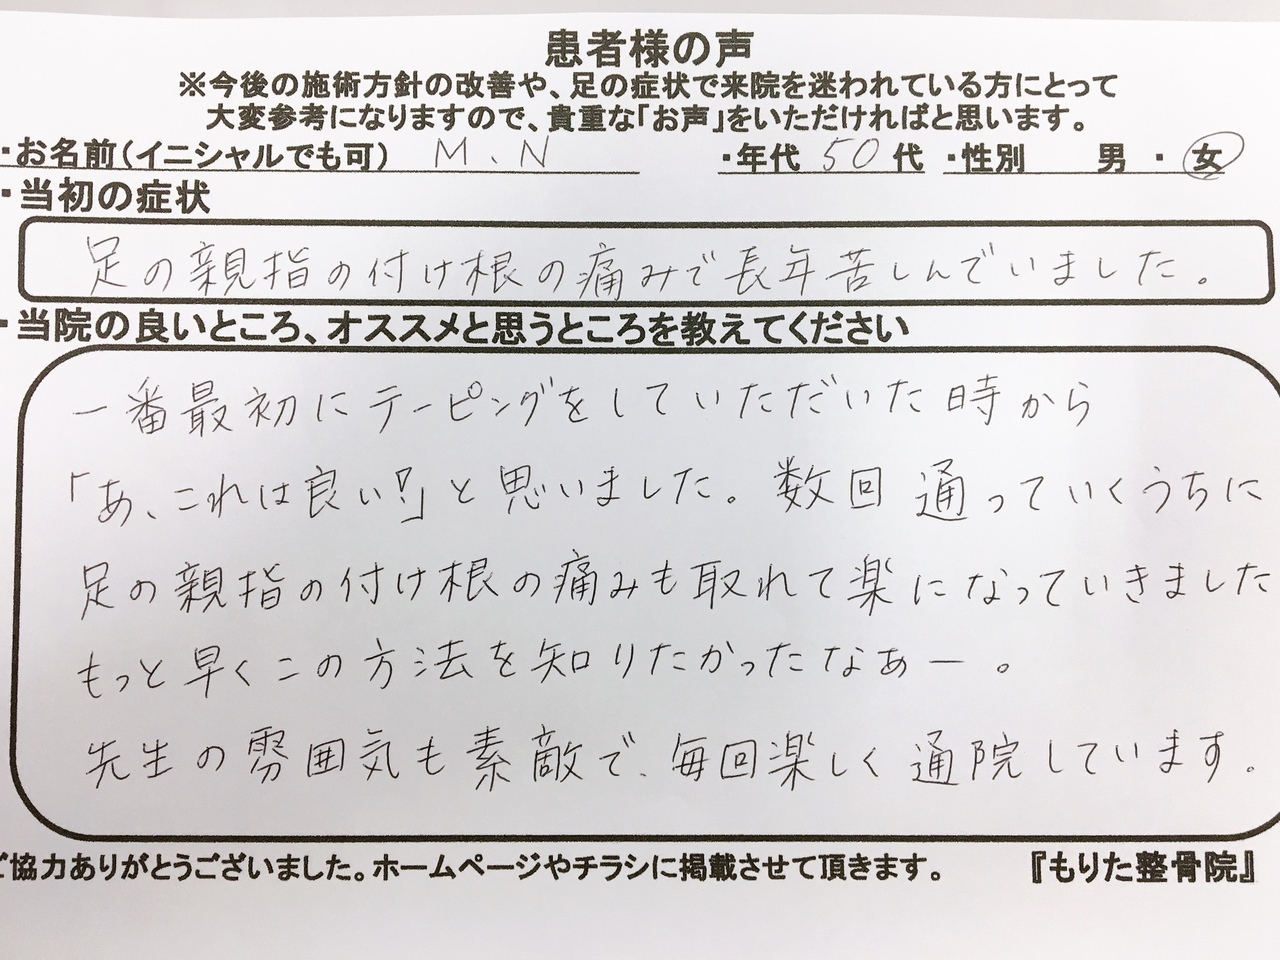 患者様の声
※今後の施術方針の改善や、足の症状で来院を迷われている方にとって
大変参考になりますので、貴重な「お声」をいただければと思います。
・お名前(イニシャルでも可) M.N ・年代 50代 ・性別 男 ・ 女
・当初の症状
足の親指の付け根の痛みで長年苦しんでいました。
・当院の良いところ、オススメと思うところを教えてください
一番最初にテーピングをしていただいた時から
「あ、これは良い!」と思いました。数回通っていくうちに
足の親指の付け根の痛みも取れて楽になっていきました
もっと早くこの方法を知りたかったなぁー。
先生の雰囲気も素敵で、毎回楽しく通院しています。
ご協力ありがとうございました。ホームページやチラシに掲載させて頂きます。 『もりた整骨院』